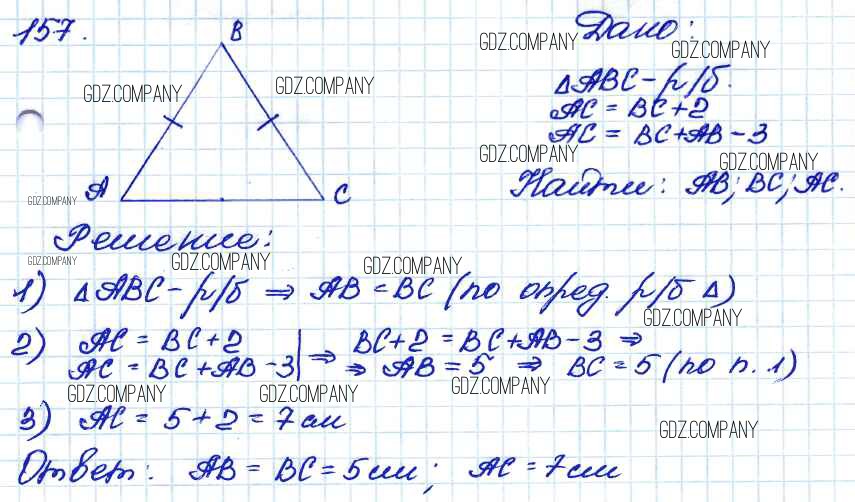 157.
B
A
C
GDZ.COMPANY
GDZ.COMPANY
GDZ.COMPANY
Дано:
GDZ.COMPANY
GDZ.COMPANY
△ABC – р/б.
AC = BC + 2
AC = BC + AB – 3
GDZ.COMPANY
GDZ.COMPANY
Найти: AB; BC; AC.
Решение:
GDZ.COMPANY
GDZ.COMPANY
GDZ.COMPANY
1) △ABC – р/б ⇒ AB = BC (по опред. р/б △)
GDZ.COMPANY
2) AC = BC + 2 | BC + 2 = BC + AB – 3 ⇒
AC = BC + AB – 3 | ⇒ ⇒ AB = 5 ⇒ BC = 5 (по п. 1)
GDZ.COMPANY
GDZ.COMPANY
GDZ.COMPANY
3) AC = 5 + 2 = 7 см
GDZ.COMPANY
Ответ: AB = BC = 5 см; AC = 7 см